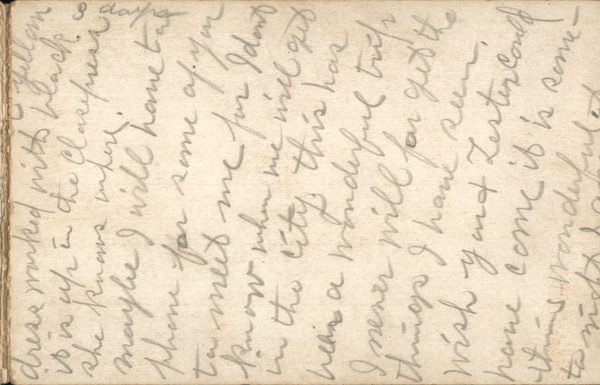 yellow
dress worked with black
it is up in the Clospress
she knows where. 3 days
maybe I will have to
phone for some of you
to meet me for I dont
know when we will get
in the city this has
been a wonderful trip
I never will forget the
things I have seen.
Wish you & Lester could
have come it is some-
thing wonderful
to night